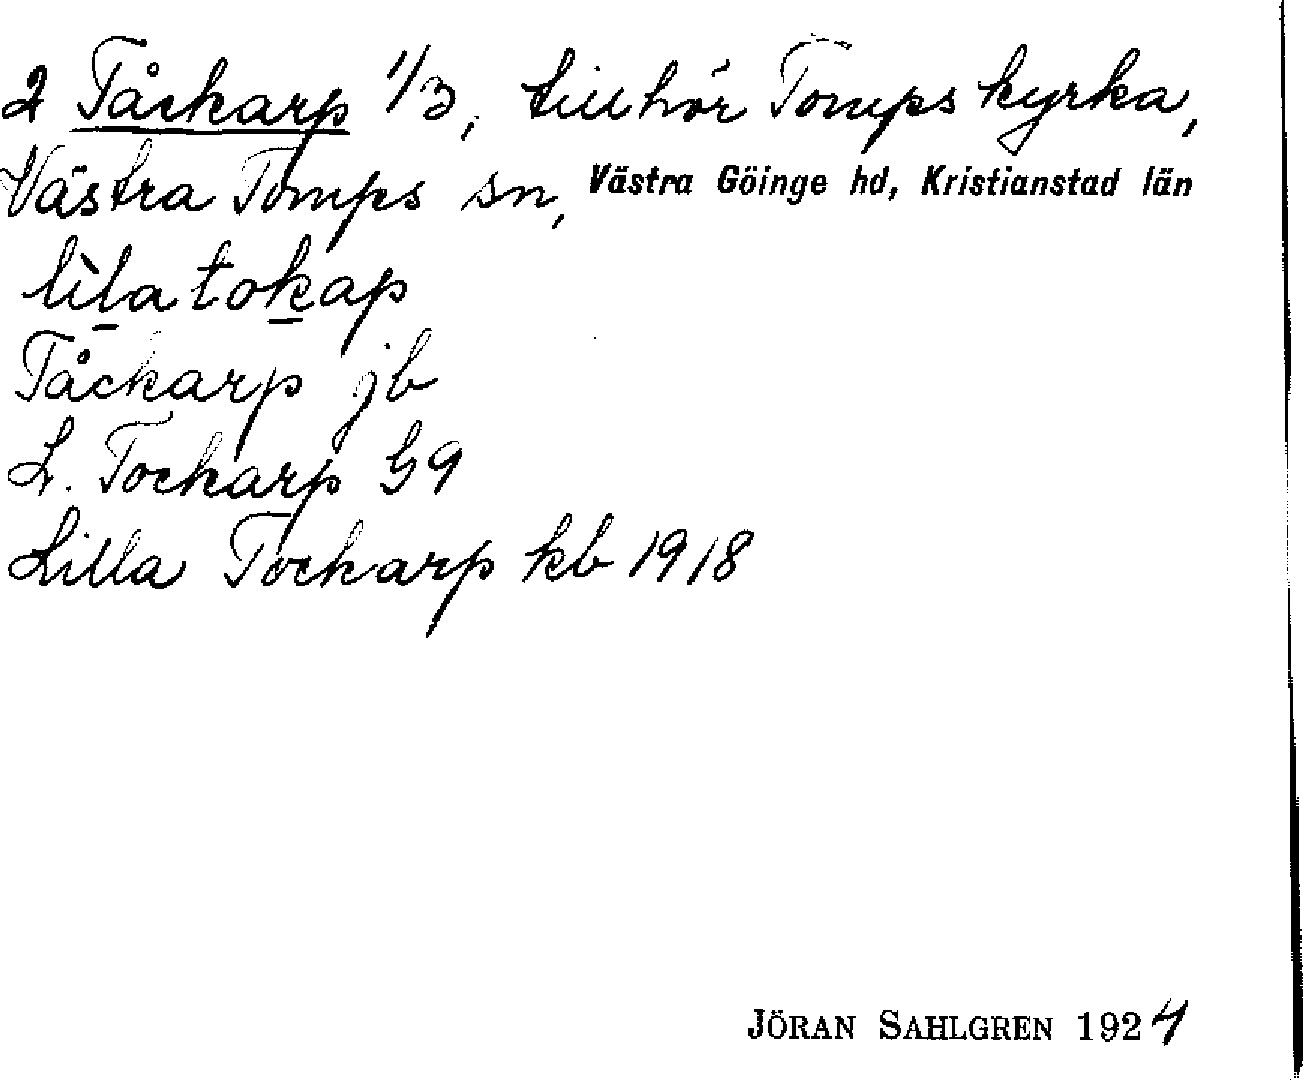 2 Tåckarp 1/3, tillhör Tomps kyrka,
Västra Tomps sn, Västra Göinge hd, Kristianstad län
lìla tokap
Tåckarp jb
L. Tockarp G9
Lilla Tockarp kb 1918
JÖRAN SAHLGREN 1924